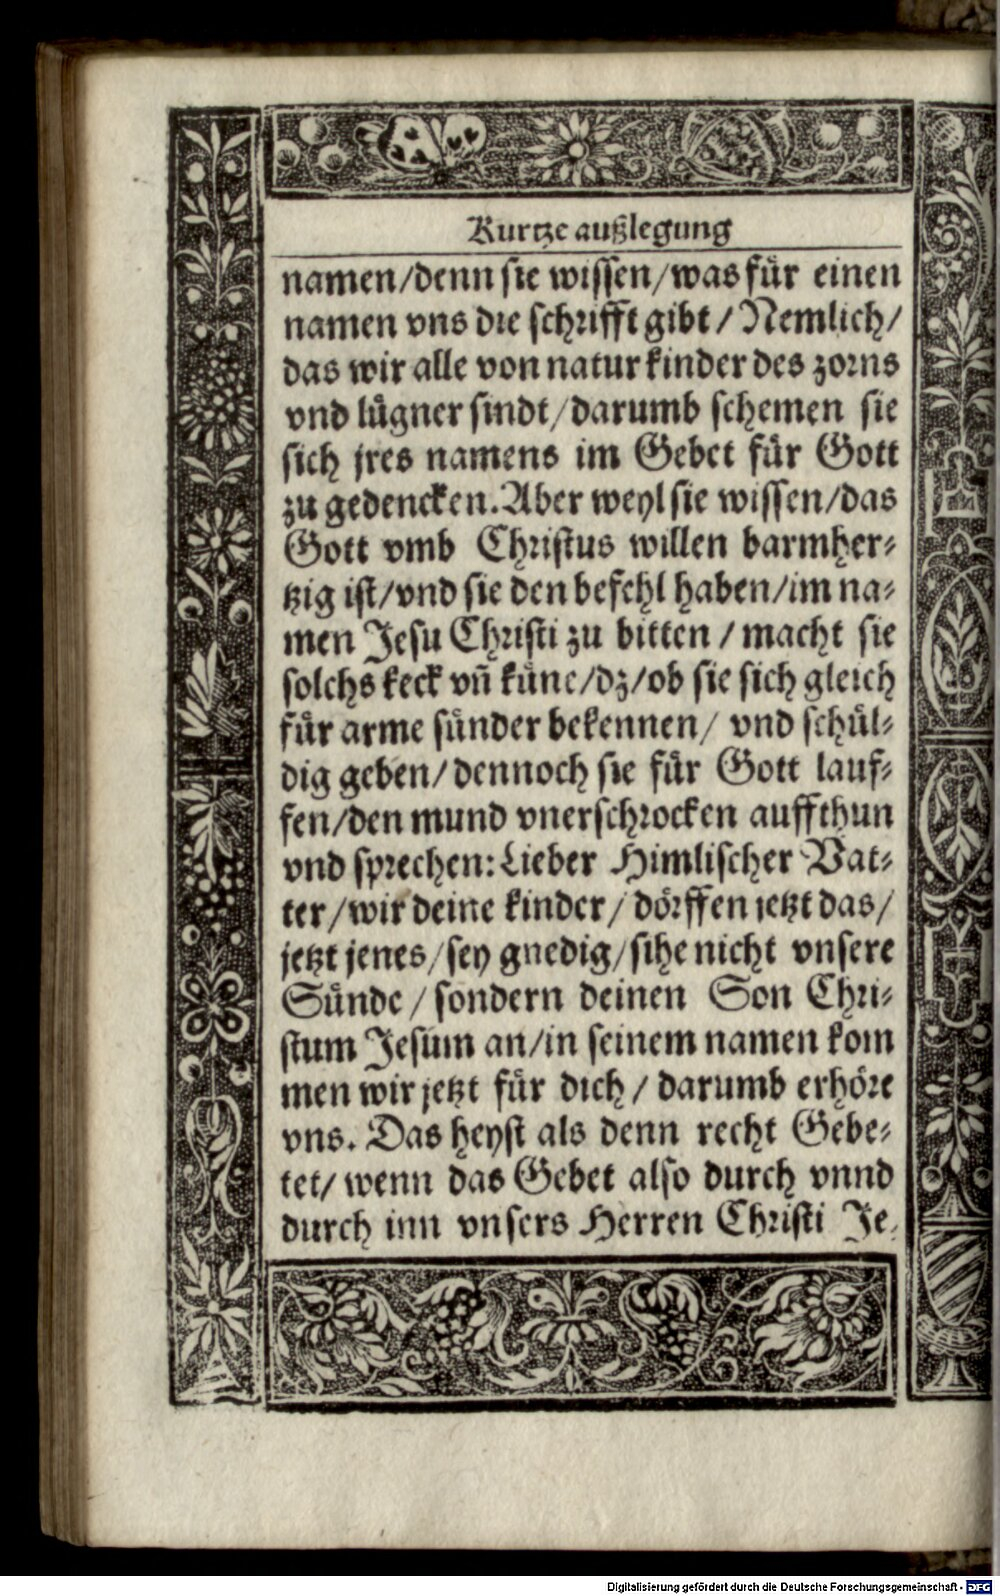 Kurtze außlegung
namen/denn sie wissen/was für einen
namen vns die schrifft gibt/Nemlich/
das wir alle von natur kinder des zorns
vnd lügner sindt/darumb schemen sie
sich jres namens im Gebet für Gott
zu gedencken. Aber weyl sie wissen/das
Gott vmb Christus willen barmher⸗
tzig ist/vnd sie den befehl haben/im na⸗
men Jesu Christi zu bitten/macht sie
solchs keck vñ küne/dz/ob sie sich gleich
für arme sünder bekennen/ vnd schül⸗
dig geben/dennoch sie für Gott lauf⸗
fen/den mund vnerschrocken auffthun
vnd sprechen: Lieber Himlischer Vat⸗
ter/wir deine kinder/dörffen jetzt das/
jetzt jenes/sey gnedig/sihe nicht vnsere
Sünde/sondern deinen Son Chri⸗
stum Jesum an/in seinem namen kom
men wir jetzt für dich/darumb erhöre
vns. Das heyst als denn recht Gebe⸗
tet/wenn das Gebet also durch vnnd
durch inn vnsers Herren Christi Je⸗
Digitalisierung gefördert durch die Deutsche Forschungsgemeinschaft - DFG